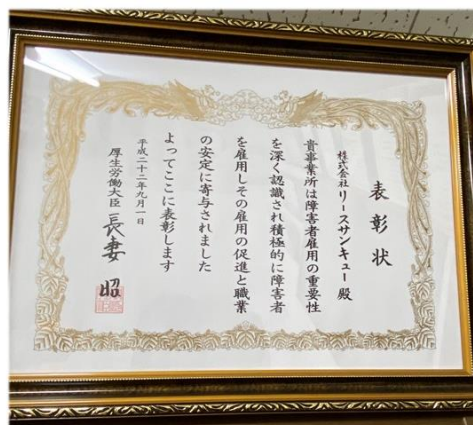 表彰状
株式会社リースサンキュー殿
貴事業所は障害者雇用の重要性
を深く認識され積極的に障害者
を雇用しその雇用の促進と職業
の安定に寄与されました
よってここに表彰します
平成二十二年九月一日
厚生労働大臣 長妻 昭